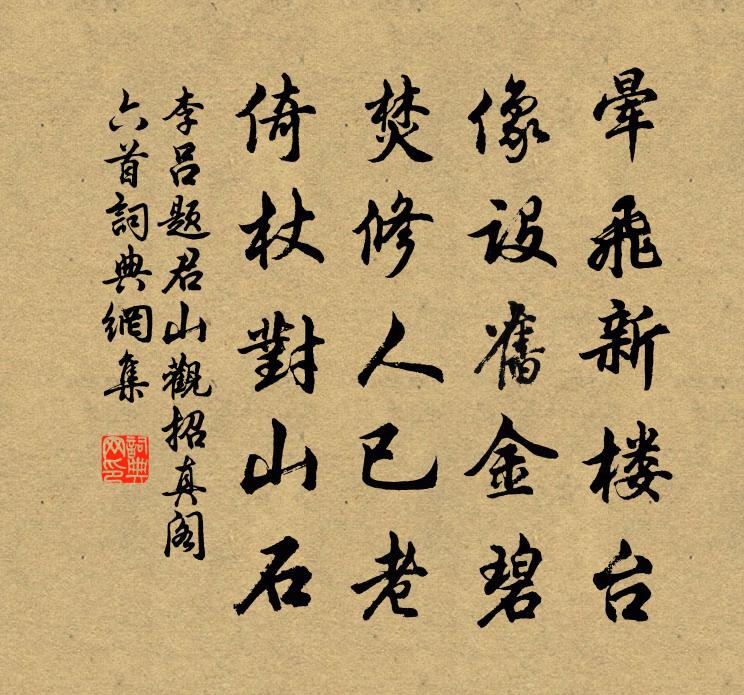 晕飛新楼台
像设舊金碧
焚修人已老
倚杖對山石
李吕题君山觀招真阁
六首詞典網集
詞典網印